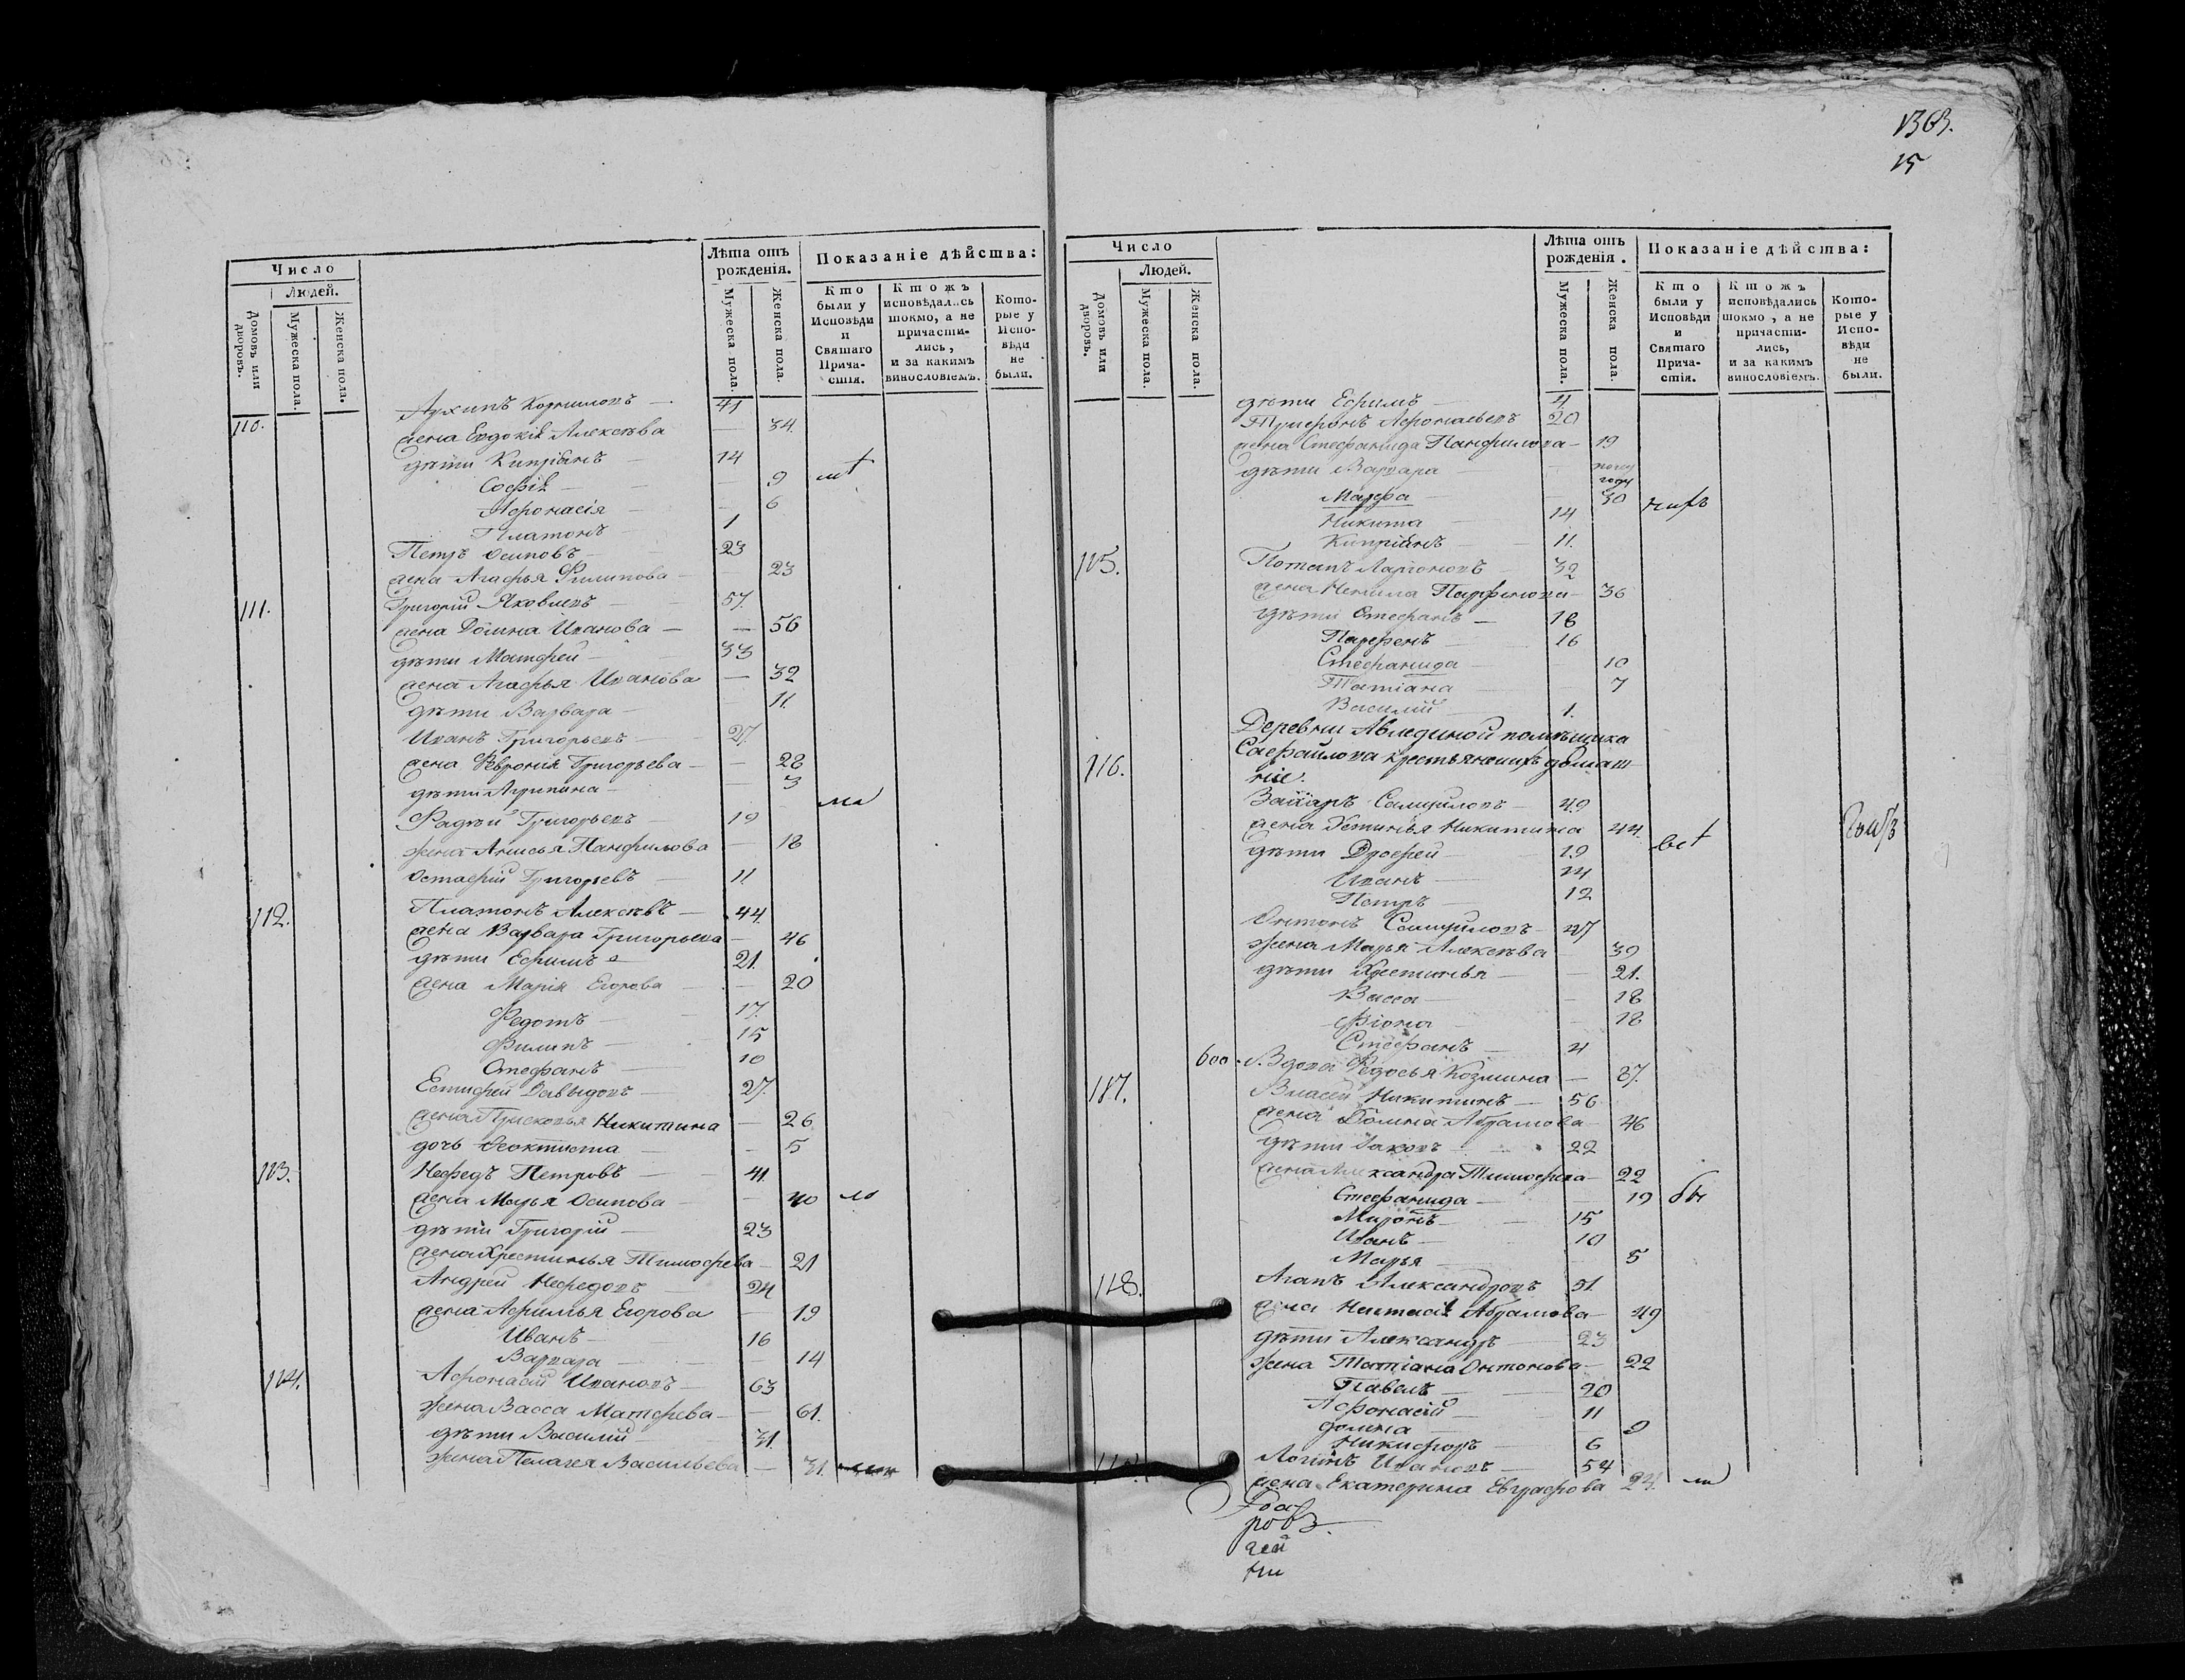 Число
Людей.
Домовъ или дворовъ.
Мужеска пола.
Женска пола.
Лѣта отъ рожденія.
Мужеска пола.
Женска пола.
Показаніе дѣйства:
Кто были у Исповѣди и Святаго Причастія.
Ктожъ исповѣдались токмо, а не причастились, и за какимъ винословіемъ.
Которые у Исповѣди не были.
110. Архипъ Корниловъ — 41
жена Евдокія Алексѣва — 34.
дѣти Кипріянъ — 14
Софія — 9
Афонасія — 6
Платонъ — 1
Петръ Осиповъ — 23
жена Агафья Филипова — 23
111. Григорій Яковлевъ — 57.
жена Домна Иванова — 56
дѣти Матфей — 33
жена Агафья Иванова — 32
дѣти Варвара — 11.
Иванъ Григорьевъ — 27.
жена Февронія Григорьева — 28
дѣти Агрипина — 3
Фадѣй Григорьевъ — 19
жена Анисья Панфилова — 18
Остафій Григорьевъ — 11.
112. Платонъ Алексѣвъ — 44.
жена Варвара Григорьева — 46
дѣти Ефимъ — 21.
жена Марія Егорова — 20
Федотъ — 17.
Филипъ — 15
Стефанъ — 10
Естифей Давыдовъ — 27.
жена Прасковья Никитина — 26
дочь Феоктиста — 5
113. Нефедъ Петровъ — 41.
жена Марья Осипова — 40
дѣти Григорій — 23
жена Хрестинья Тимофева — 21
Андрей Нефедовъ — 24
жена Афимья Егорова — 19
Иванъ — 16
Варвара — 14
114. Афонасій Ивановъ — 63
жена Васса Матфева — 61.
дѣти Василій — 31.
жена Пелагея Васильева — 31.
15
Число
Людей.
Домовъ или дворовъ.
Мужеска пола.
Женска пола.
Лѣта отъ рожденія.
Мужеска пола.
Женска пола.
Показаніе дѣйства:
Кто были у Исповѣди и Святаго Причастія.
Ктожъ исповѣдались токмо, а не причастились, и за какимъ винословіемъ.
Которые у Исповѣди не были.
дѣти Ефимъ — 4.
Трифонъ Афонасьевъ 20
жена Стефанида Панфилова — 19
дѣти Варвара —
Марфа — 30
Никита — 14
Кипріянъ — 11.
115. Потапъ Ларіоновъ — 32
жена Ненила Парфенова — 36
дѣти Стефанъ — 18
Парфенъ — 16
Стефанида — 10
Татіана — 7
Василій — 1.
Деревни Авлединой помѣщика
116.
Захаръ Самуиловъ — 49
жена Устинья Никитина 44.
дѣти Дрофей — 19
Иванъ — 14
Петръ — 12
Онтонъ Самуиловъ — 47
жена Марья Алексѣва — 39
дѣти Хрестинья — 21.
Васса — 18
Фіона — 18
Стефанъ — 4
600 Вдова Федосья Козмина — 87.
117. Власей Никитинъ — 56
жена Домна Абрамова — 46
дѣти Яковъ — 22
жена Александра Тимофева — 22
Стефанида — 19
Миронъ — 15
Иванъ — 10
Марья — 5
118. Агапъ Александровъ 51.
жена Настасія Абрамова — 49
дѣти Александръ — 23
жена Татіана Онтонова — 22
Павелъ — 20
Афонасій — 11
Домна — 9
Никифоръ — 6
Логинъ Ивановъ — 54
жена Екатерина Евграфова 24.